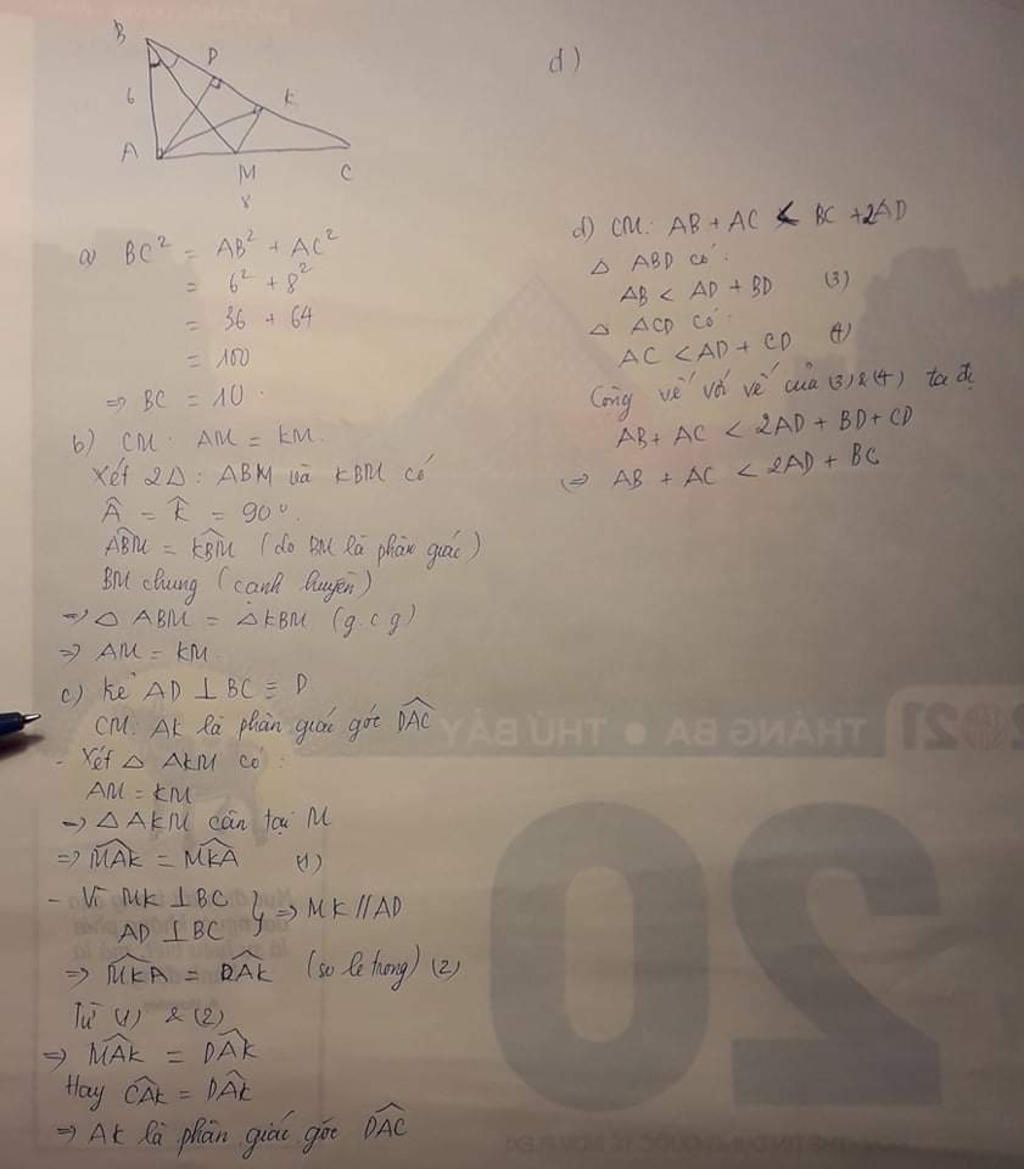 B
D
6
K
A
M
C
8
a) BC² = AB² + AC²
= 6² + 8²
= 36 + 64
= 100
=> BC = 10.
b) CM: AM = KM.
Xét 2Δ: ABM và KBM có
Â = K̂ = 90°.
ABM̂ = KBM̂ (do BM là phân giác)
BM chung (cạnh huyền)
=> Δ ABM = ΔKBM (g.c.g)
=> AM = KM.
c) Kẻ AD ⊥ BC ≡ D
CM: AK là phân giác góc DAĈ
- Xét Δ AKM có:
AM = KM
=> Δ AKM cân tại M
=> MAK̂ = MKÂ (1)
- Vì MK ⊥ BC
AD ⊥ BC } => MK // AD
=> MKÂ = DAK̂ (so le trong) (2)
Từ (1) & (2)
=> MAK̂ = DAK̂
Hay CAK̂ = DAK̂
=> AK là phân giác góc DAĈ
d)
d) CM: AB + AC < BC + 2AD
Δ ABD có:
AB < AD + BD (3)
Δ ACD có:
AC < AD + CD (4)
Cộng vế với vế của (3) & (4) ta đc
AB + AC < 2AD + BD + CD
=> AB + AC < 2AD + BC
2021
THÁNG BA • THỨ BẢY
20